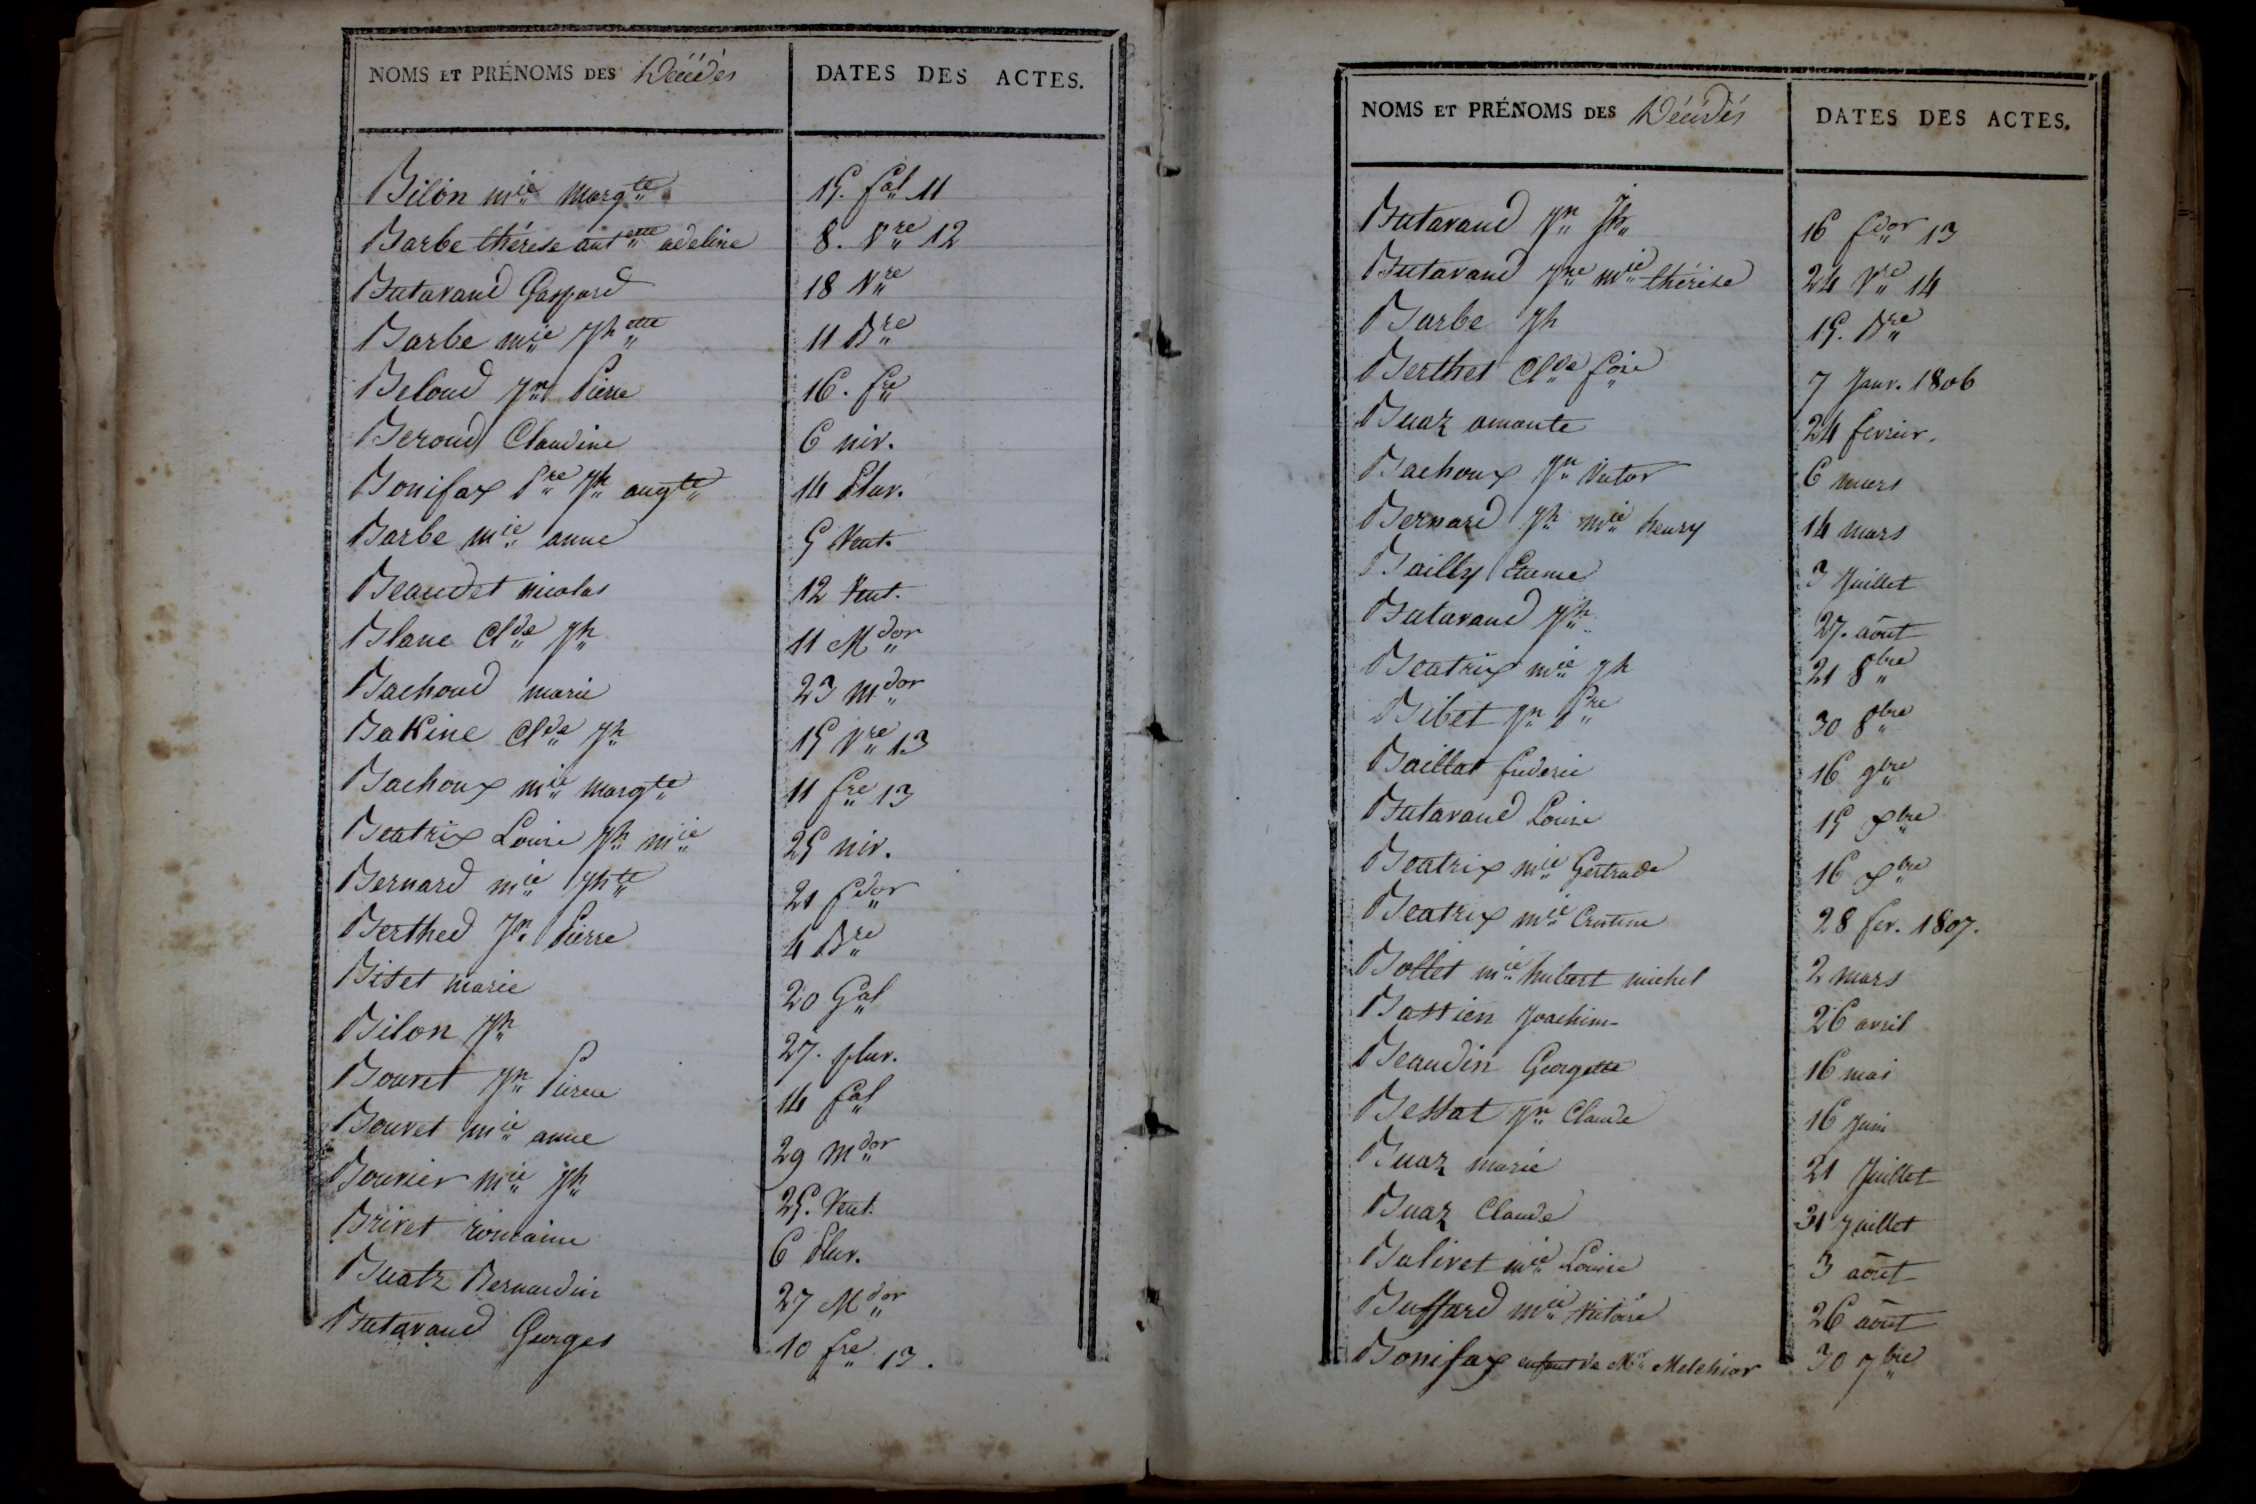 NOMS ET PRÉNOMS DES Décédés DATES DES ACTES.
Bilon mie margte 15. fal 11
Barbe thérèse antette adeline 8. Vre 12
Butavand Gaspard 18 Vre
Barbe mie Jhette 11 Bre
Beloud Jn Pierre 16. fre
Beroud Claudine 6 niv.
Bonifax Pre Jh augte 14 Pluv.
Barbe mie anne 5 Vent.
Beaudet nicolas 12 Vent.
Blanc Clde Jh 11 Mdor
Bachoud marie 23 mdor
BaKine Clde Jh 15 Vre 13
Bachoux mie margte 11 fre 13
Beatrix Louise Jh mie 25 niv.
Bernard mie Jhte 21 fdor
Berthed Jn Pierre 4 Bre
Bitet marie 20 Gal
Bilon Jh 27. pluv.
Bouvet Jn Pierre 14 fal
Bouvet mie anne 29 mdor
Bouvier mie Jh 25. Vent.
Brivet romaine 6 Pluv.
Buatz Bernardin 27 Mdor
Butavand Georges 10 fre 13.
NOMS ET PRÉNOMS DES Décédés DATES DES ACTES.
Butavand Jn Jh 16 fdor 13
Butavand Jne mie thérèse 24 Vre 14
Barbe Jh 15. Bre
Berthet Clde foise 7 Janv. 1806
Buaz amante 24 fevrier.
Bachoux Jn Victor 6 mars
Bernard Jh mie henry 14 mars
Bailly Etienne 3 Juillet
Butavand Jh 27. août
Beatrix mie Jh 21 8bre
Bibet Jn Pre 30 8bre
Baillat frederic 16 9bre
Butavand Louise 15 xbre
Beatrix mie Gertrude 16 xbre
Beatrix mie Cristine 28 fev. 1807.
Bollet mie hubert michel 2 mars
Bastien Joachim 26 avril
Beaudin Georgette 16 mai
Bessat Jn Claude 16 Juin
Buaz marie 21 Juillet
Buaz Claude 31 Juillet
Balivet mie Louise 3 août
Buffard mie Victoire 26 août
Bonifax enfant de Mr Melchior 30 7bre